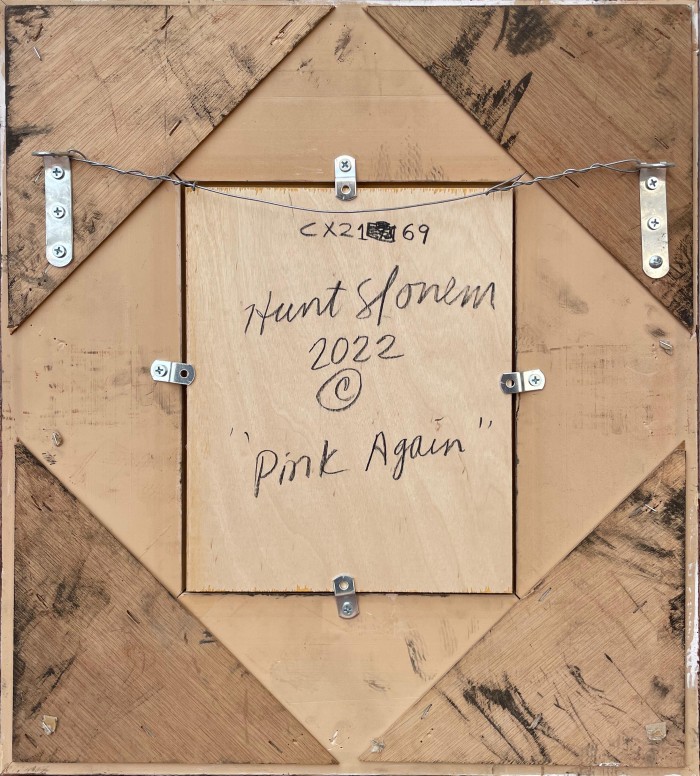 CX21 69
Hunt Slonem
2022
©
"Pink Again"